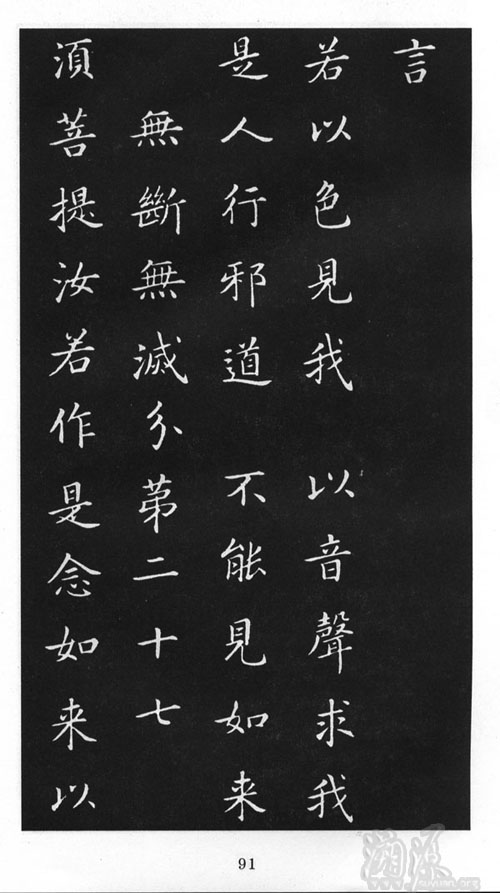 言
若以色見我 以音聲求我
是人行邪道 不能見如来
無斷無滅分第二十七
湏菩提汝若作是念如来以
91